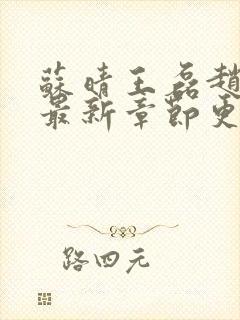 蘇晴王磊趙
最新章節更
路四元